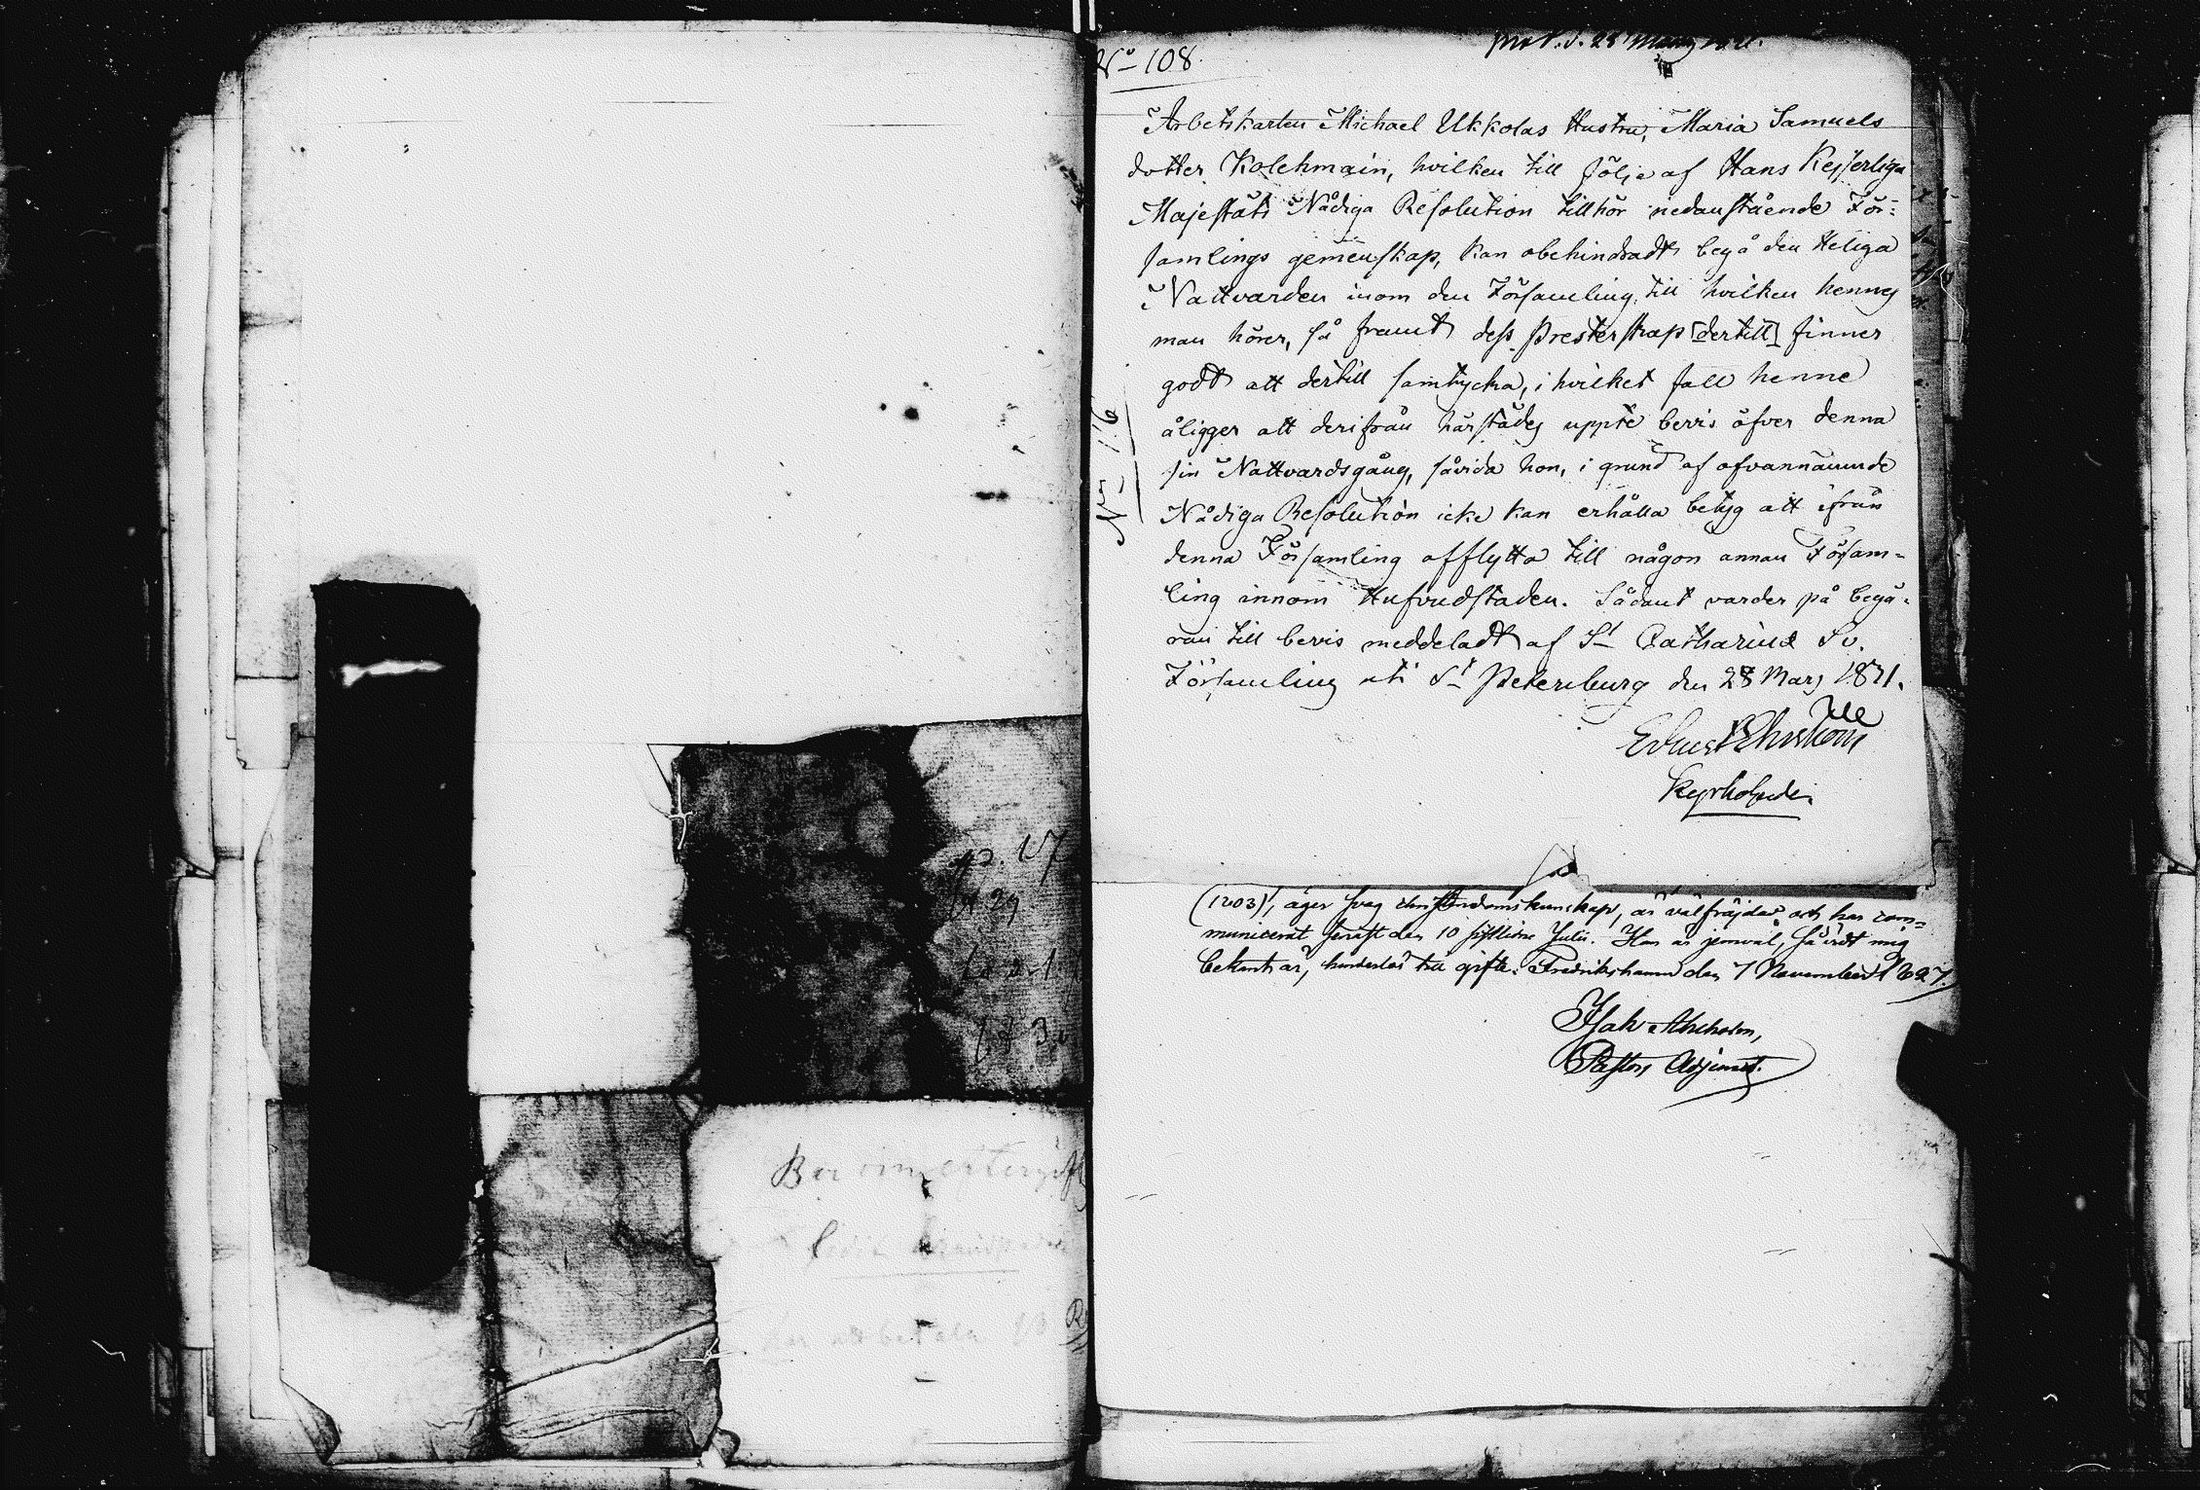 No 108.
Arbetskarlen Michael Ukkolas Hustru, Maria Samuels
dotter Kolehmain, hvilken till följe af Hans Kejserliga
Majestäts Nådiga Resolution tillhör nedanstående För-
samlings gemenskap, kan obehindradt begå den Heliga
Nattvarden inom den Församling, till hvilken hennes
man hörer, så framt dess Presterskap [dertill] finner
godt att dertill samtycka, i hvilket fall henne
åligger att derifrån härstädes uppte bevis öfver denna
sin Nattvardsgång, såvida hon, i grund af ofvannämnde
Nådiga Resolution icke kan erhålla betyg att ifrån
denna Församling afflytta till någon annan Försam-
ling innom Hufvudstaden. Sådant varder på begä-
ran till bevis meddeladt af St Catharinæ Sv.
Församling uti St Petersburg den 28 Mars 1831.
Kyrkoherde.
No 116
(1203), äger svag christendomskunskap, är välfräjdad och har com-
municerat senast den 10 sistlidne Julii. Han är jemväl, såvidt mig
bekant är, hinderlös till gifte. Fredrikshamn den 7 November 1827.
Isak
Pastors Adjunct.